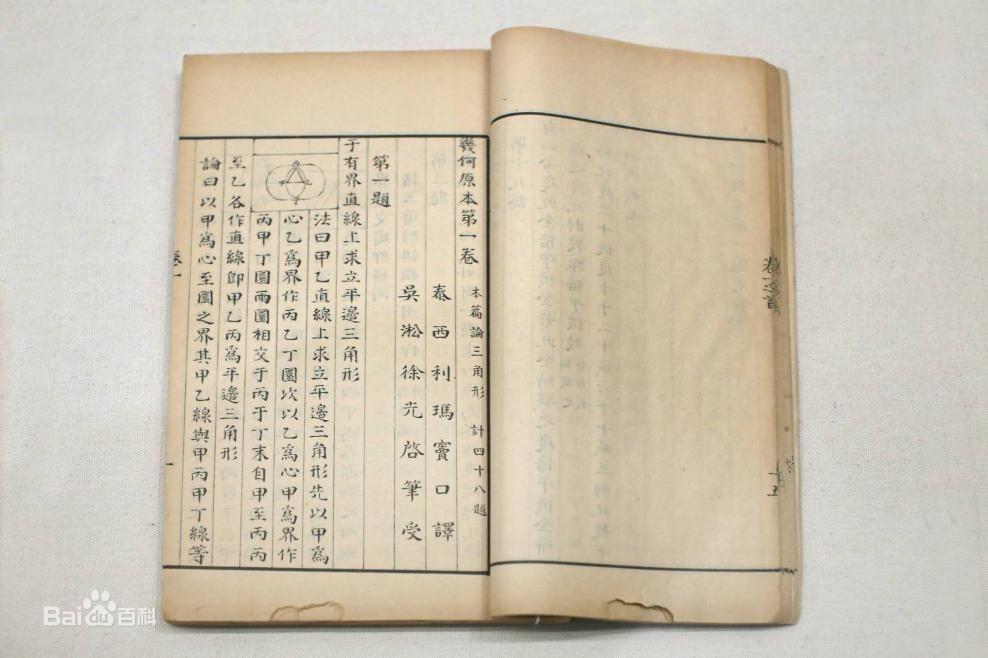 卷一之首
十五
幾何原本第一卷 本篇論三角形 計四十八題
泰西利瑪竇口譯
吳淞徐光啓筆受
第一題
于有界直線上求立平邊三角形
法曰甲乙直線上求立平邊三角形先以甲爲
心乙爲界作丙乙丁圜次以乙爲心甲爲界作
丙甲丁圜兩圜相交于丙于丁末自甲至丙丙
至乙各作直線即甲乙丙爲平邊三角形
論曰以甲爲心至圜之界其甲乙線與甲丙甲丁線等
卷一
一
Bai du 百科